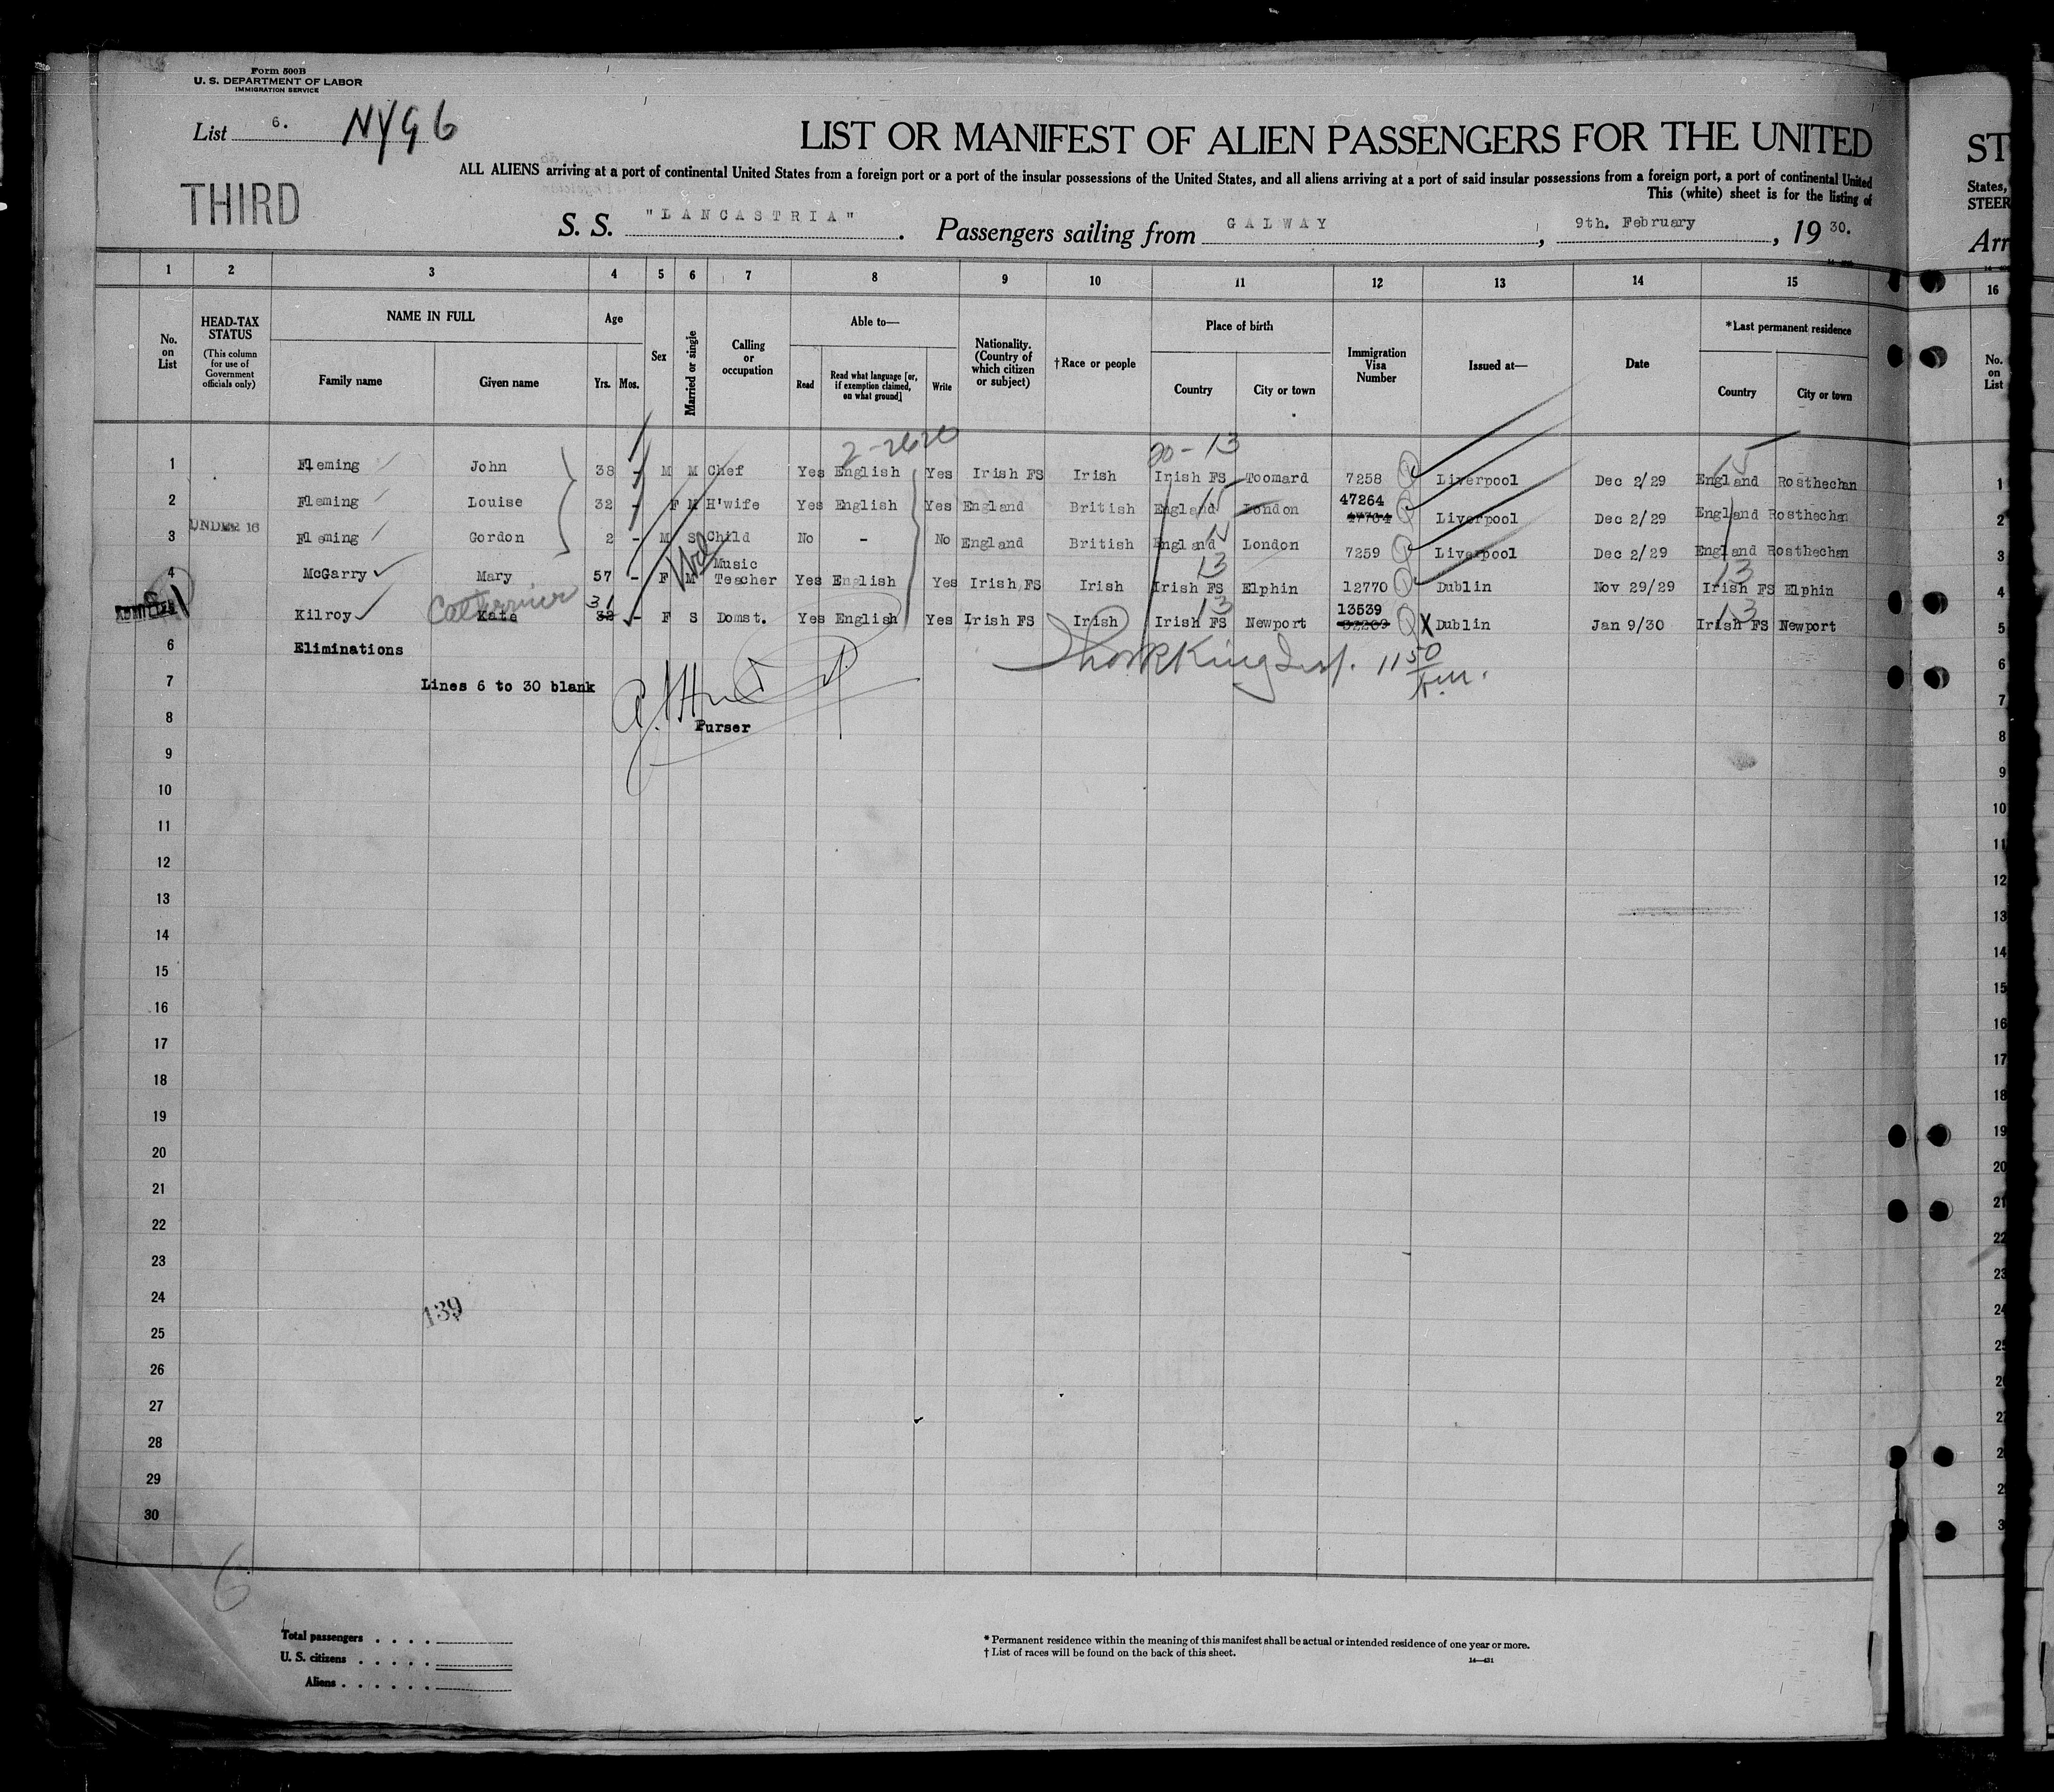 Form 500B
U. S. DEPARTMENT OF LABOR
IMMIGRATION SERVICE
List 6. NYG6
LIST OR MANIFEST OF ALIEN PASSENGERS FOR THE UNITED ST
ALL ALIENS arriving at a port of continental United States from a foreign port or a port of the insular possessions of the United States, and all aliens arriving at a port of said insular possessions from a foreign port, a port of continental United States,
This (white) sheet is for the listing of STEER
THIRD
S. S. "LANCASTRIA". Passengers sailing from GALWAY, 9th. February, 1930. Arr
1 2 3 4 5 6 7 8 9 10 11 12 13 14 15 16
No. on List
HEAD-TAX STATUS
(This column for use of Government officials only)
NAME IN FULL
Family name Given name
Age
Yrs. Mos.
Sex
Married or single
Calling or occupation
Able to—
Read Read what language [or, if exemption claimed, on what ground] Write
Nationality. (Country of which citizen or subject)
†Race or people
Place of birth
Country City or town
Immigration Visa Number
Issued at—
Date
*Last permanent residence
Country City or town
No. on List
20-13
1 Fleming John 38 - M M Chef Yes English Yes Irish FS Irish Irish FS Toomard 7258 Liverpool Dec 2/29 England Rosthechan 1
2 Fleming Louise 32 - F M H'wife Yes English Yes England British England London 47264 Liverpool Dec 2/29 England Rosthechan 2
UNDER 16
3 Fleming Gordon 2 - M S Child No - No England British England London 7259 Liverpool Dec 2/29 England Rosthechan 3
4 McGarry Mary 57 - F M Wd Music Teacher Yes English Yes Irish FS Irish Irish FS 13 Elphin 12770 Dublin Nov 29/29 Irish FS 13 Elphin 4
ADMITTED Kilroy Kate 31 32 - F S Domst. Yes English Yes Irish FS Irish Irish FS 13 Newport 13539 X Dublin Jan 9/30 Irish FS 13 Newport 5
6 Eliminations 6
7 Lines 6 to 30 blank 7
Purser
8 8
9 9
10 10
11 11
12 12
13 13
14 14
15 15
16 16
17 17
18 18
19 19
20 20
21 21
22 22
23 23
24 139 24
25 25
26
27
28
29
30
6
Total passengers
U. S. citizens
Aliens
* Permanent residence within the meaning of this manifest shall be actual or intended residence of one year or more.
† List of races will be found on the back of this sheet.
14—431